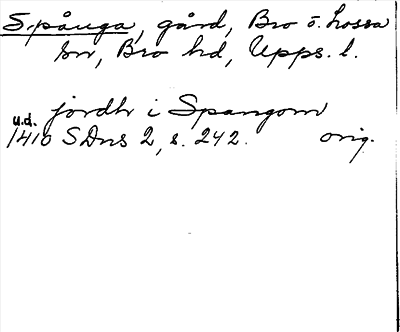 Spånga, gård, Bro o. Lossa
sn, Bro hd, Upps. l.
jordh i Spangom
u.d.
1410 SDns 2, s. 242. orig.